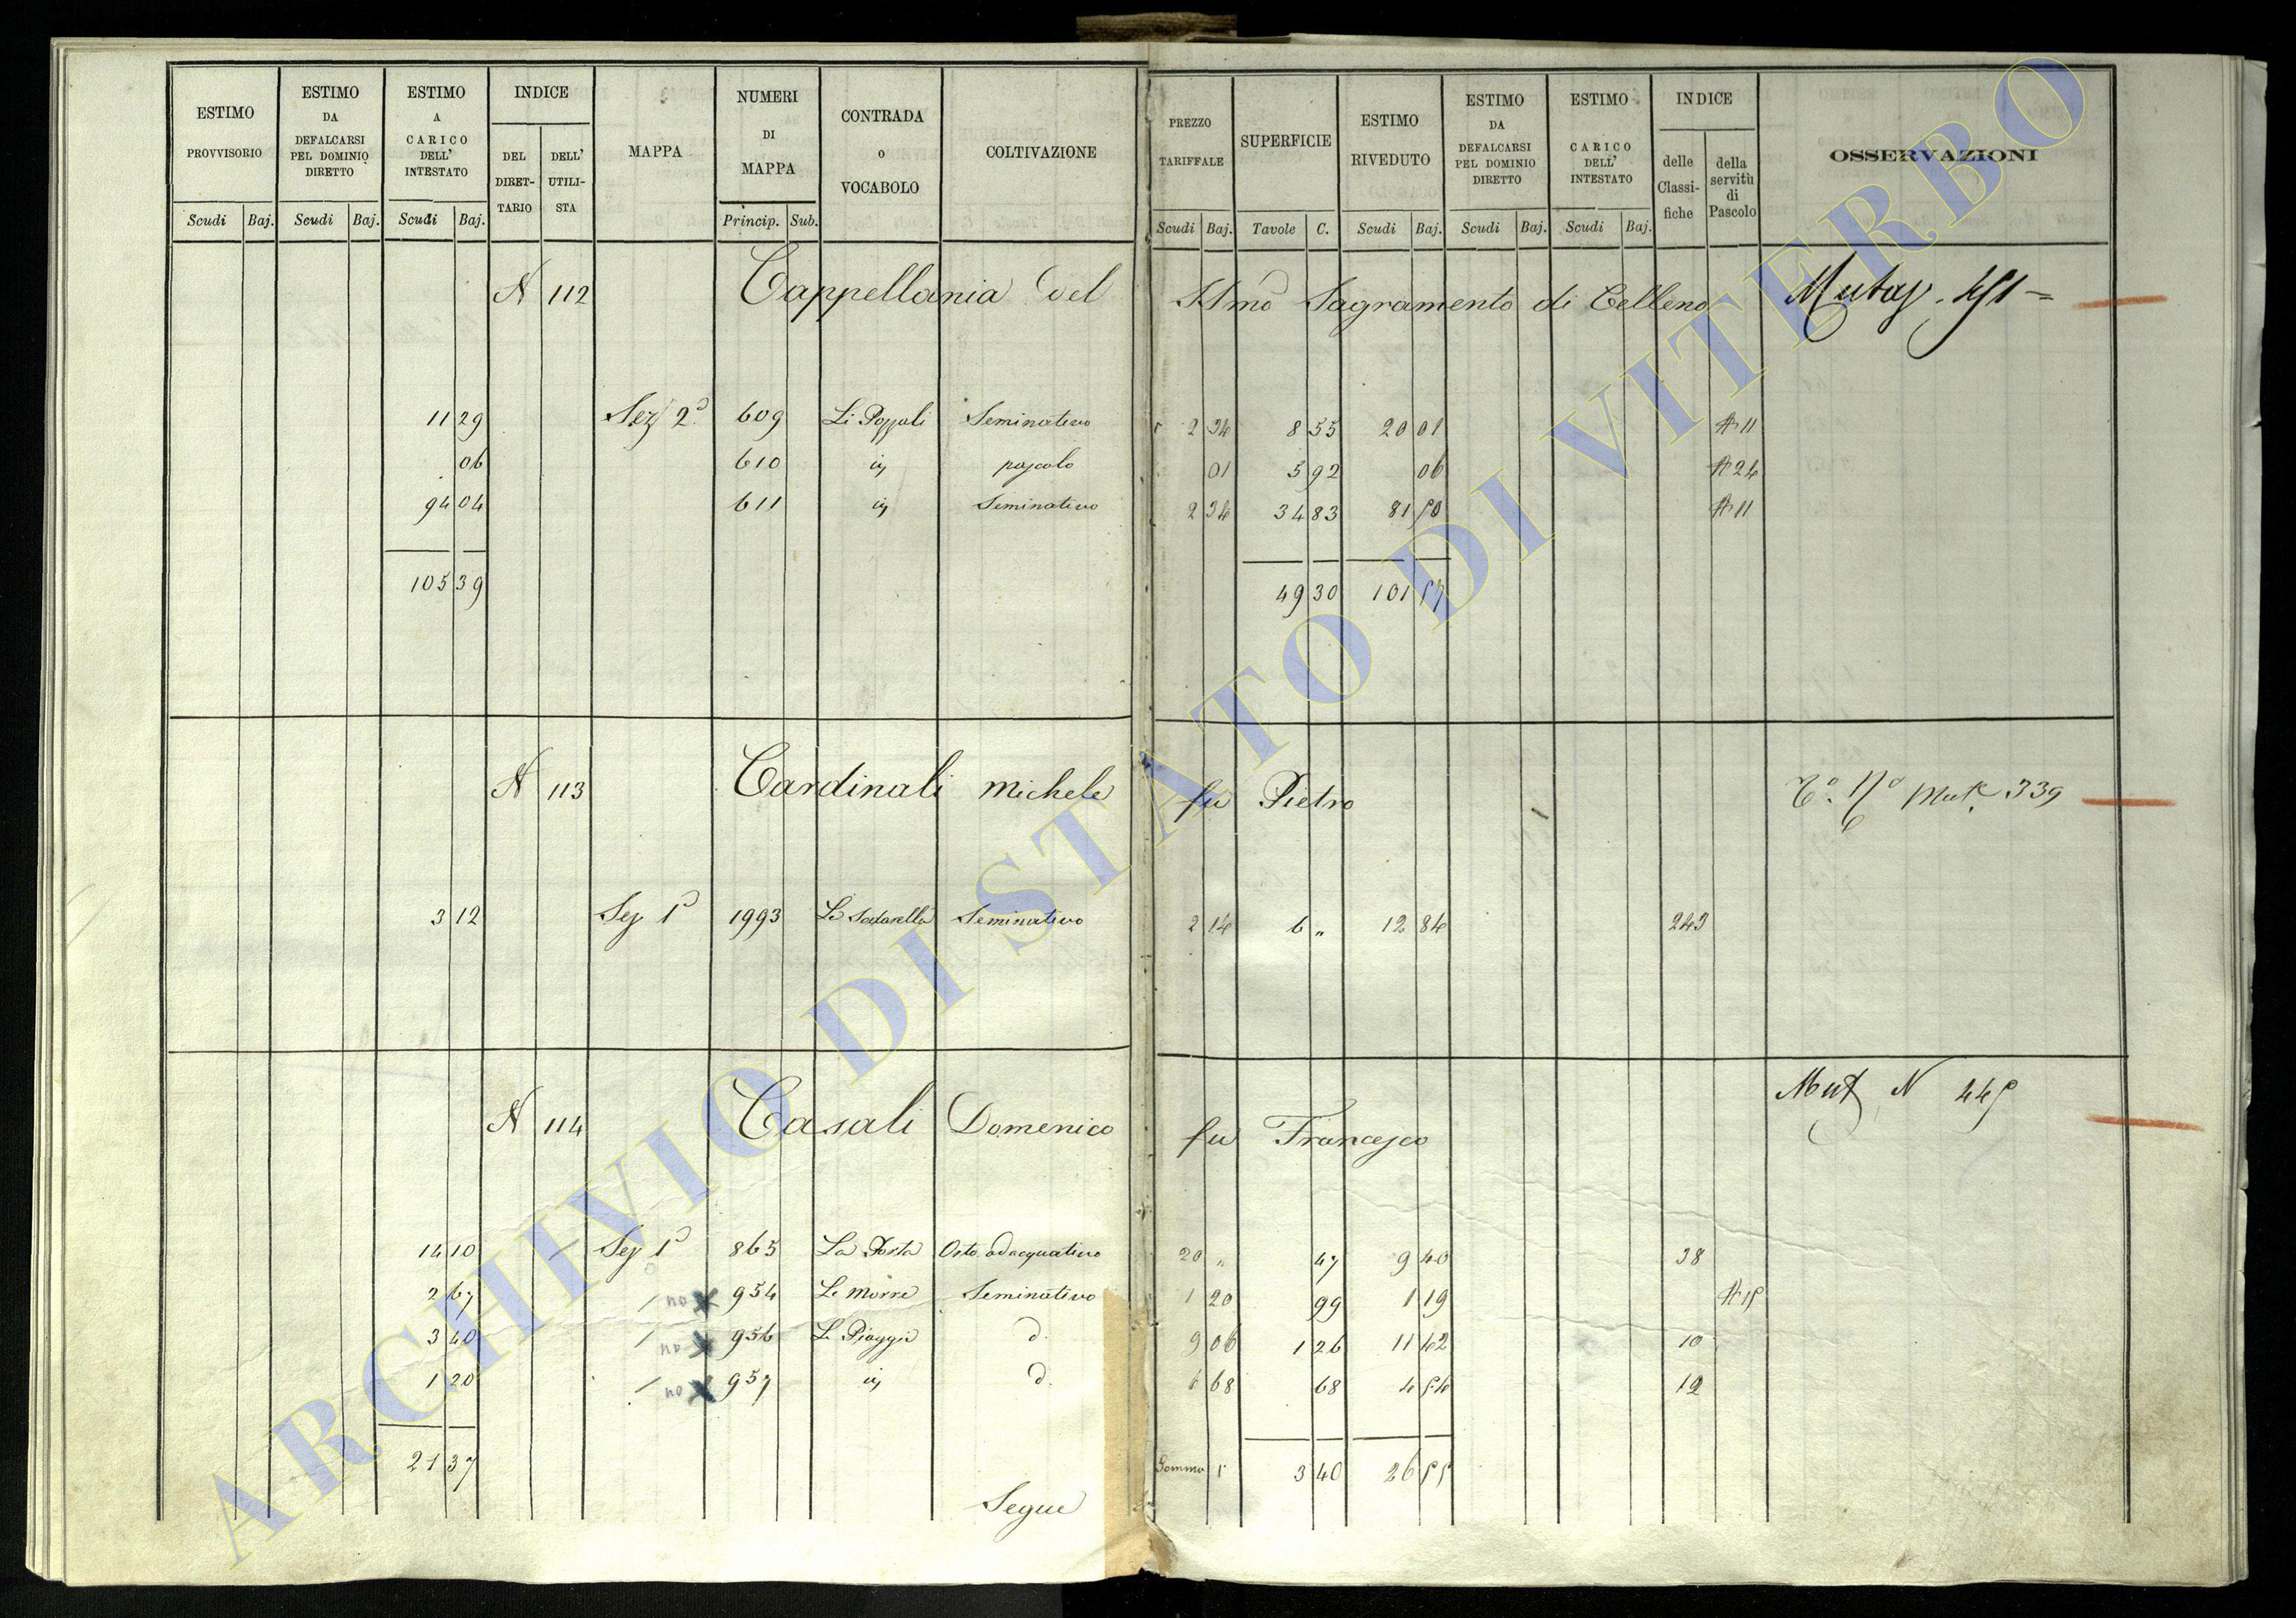 ESTIMO PROVVISORIO
ESTIMO DA DEFALCARSI PEL DOMINIO DIRETTO
ESTIMO A CARICO DELL' INTESTATO
INDICE
DEL DIRET- TARIO
DELL' UTILI- STA
MAPPA
NUMERI DI MAPPA
CONTRADA O VOCABOLO
COLTIVAZIONE
PREZZO TARIFFALE
SUPERFICIE
ESTIMO RIVEDUTO
ESTIMO DA DEFALCARSI PEL DOMINIO DIRETTO
ESTIMO A CARICO DELL' INTESTATO
INDICE
delle Classi- fiche
della servitù di Pascolo
OSSERVAZIONI
Scudi Baj. Scudi Baj. Scudi Baj. Princip. Sub. Scudi Baj. Tavole C. Scudi Baj. Scudi Baj. Scudi Baj.
N 112 Cappellania del SSmo Sagramento di Celleno
11 29 Sez 2a 609 Li Poggali Seminativo 2 34 8 55 20 01 A 11
06 610 id pascolo 01 5 92 06 A 24
94 04 611 id Seminativo 2 34 34 83 81 50 A 11
105 39 49 30 101 57
N 113 Cardinali Michele fu Pietro Mut 339
3 12 Sez 1a 1993 Seminativo 2 14 6 " 12 84 243
N 114 Casali Domenico fu Francesco Mut N 445
14 10 Sez 1a 865 La Porta Orto adacquativo 20 " 47 9 40 38
2 67 no 954 Le Morre Seminativo 1 20 99 1 19 A 15
3 40 no 956 Le Piagge d. 9 06 1 26 11 42 10
1 20 no 957 id d. 6 68 68 4 54 12
21 37 Somma 3 40 26 55
Segue
ARCHIVIO DI STATO DI VITERBO